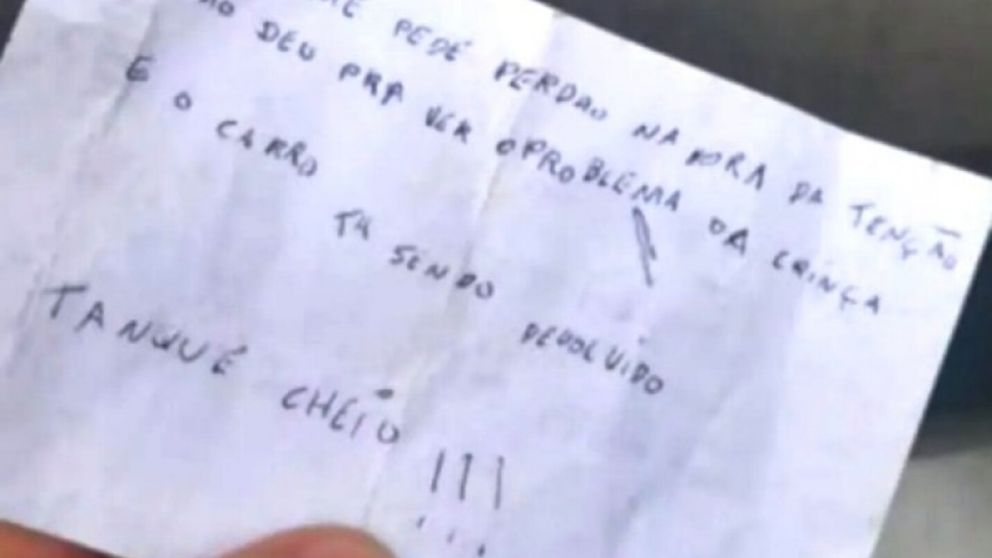 PEDE PERDÃO NA HORA DA TENÇÃO
DEU PRA VER O PROBLEMA DA CRINÇA
E O CARRO TA SENDO DEVOLVIDO
TANQUE CHEIO !!!